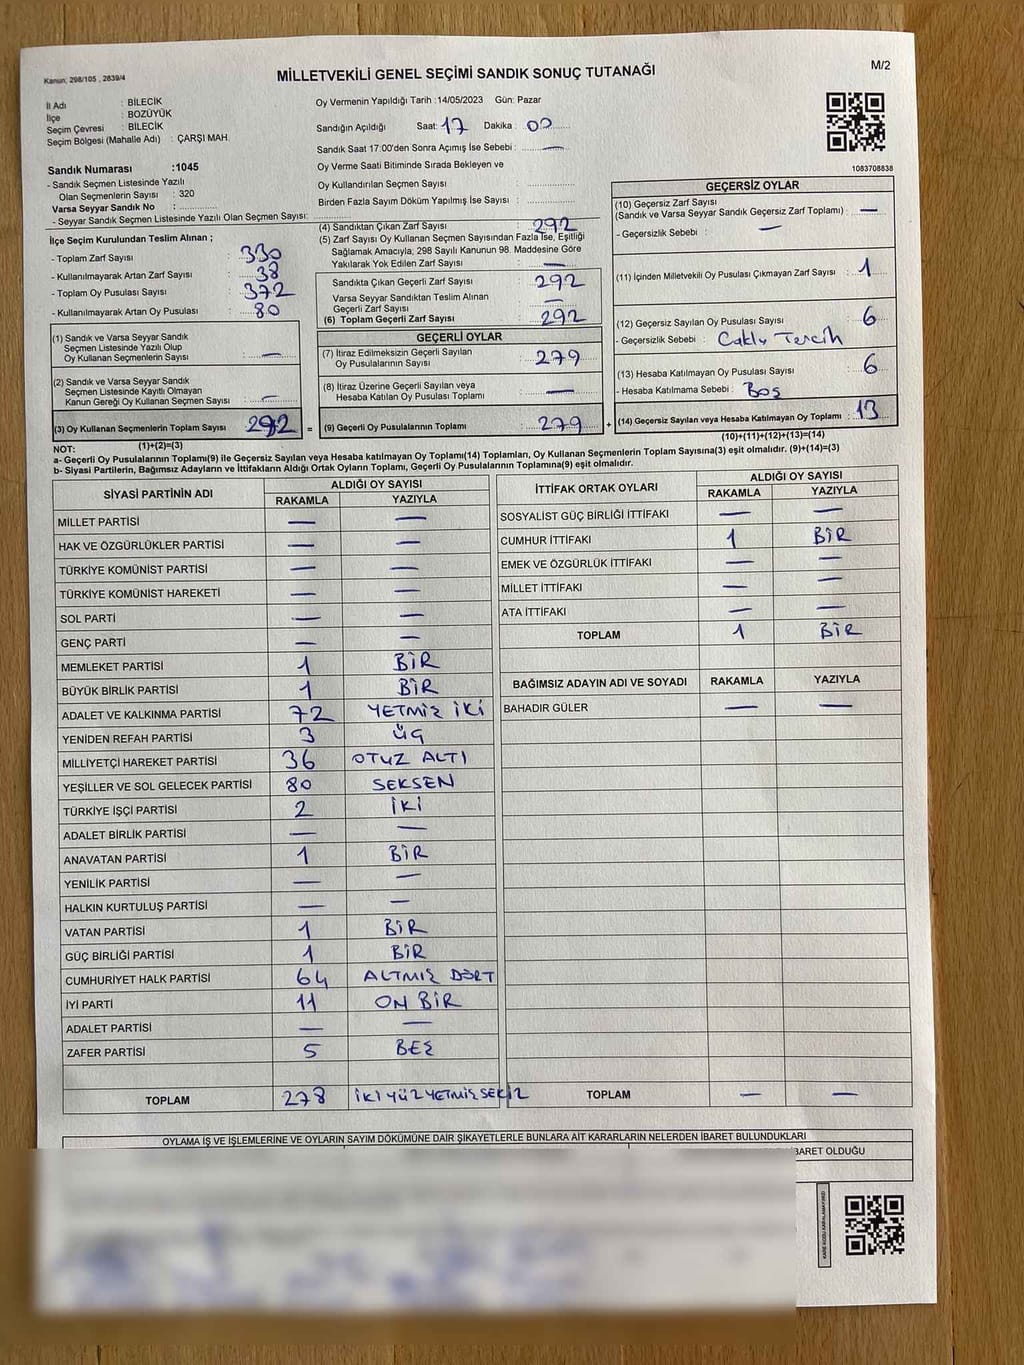 Kanun; 298/105 , 2839/4
MİLLETVEKİLİ GENEL SEÇİMİ SANDIK SONUÇ TUTANAĞI
M/2
İl Adı : BİLECİK
İlçe : BOZÜYÜK
Seçim Çevresi : BİLECİK
Seçim Bölgesi (Mahalle Adı) : ÇARŞI MAH.
Sandık Numarası :1045
- Sandık Seçmen Listesinde Yazılı
Olan Seçmenlerin Sayısı : 320
Varsa Seyyar Sandık No :
- Seyyar Sandık Seçmen Listesinde Yazılı Olan Seçmen Sayısı:
Oy Vermenin Yapıldığı Tarih :14/05/2023 Gün: Pazar
Sandığın Açıldığı Saat: 17 Dakika : 00
Sandık Saat 17:00'den Sonra Açımış İse Sebebi : —
Oy Verme Saati Bitiminde Sırada Bekleyen ve
Oy Kullandırılan Seçmen Sayısı :
Birden Fazla Sayım Döküm Yapılmış İse Sayısı :
1083708838
İlçe Seçim Kurulundan Teslim Alınan ;
- Toplam Zarf Sayısı : 330
- Kullanılmayarak Artan Zarf Sayısı : 38
- Toplam Oy Pusulası Sayısı : 372
- Kullanılmayarak Artan Oy Pusulası : 80
(1) Sandık ve Varsa Seyyar Sandık
Seçmen Listesinde Yazılı Olup
Oy Kullanan Seçmenlerin Sayısı : —
(2) Sandık ve Varsa Seyyar Sandık
Seçmen Listesinde Kayıtlı Olmayan
Kanun Gereği Oy Kullanan Seçmen Sayısı : —
(3) Oy Kullanan Seçmenlerin Toplam Sayısı 292 =
(1)+(2)=(3)
(4) Sandıktan Çıkan Zarf Sayısı : 292
(5) Zarf Sayısı Oy Kullanan Seçmen Sayısından Fazla İse, Eşitliği
Sağlamak Amacıyla, 298 Sayılı Kanunun 98. Maddesine Göre
Yakılarak Yok Edilen Zarf Sayısı : —
Sandıkta Çıkan Geçerli Zarf Sayısı : 292
Varsa Seyyar Sandıktan Teslim Alınan
Geçerli Zarf Sayısı : —
(6) Toplam Geçerli Zarf Sayısı : 292
GEÇERLİ OYLAR
(7) İtiraz Edilmeksizin Geçerli Sayılan
Oy Pusulalarının Sayısı : 279
(8) İtiraz Üzerine Geçerli Sayılan veya
Hesaba Katılan Oy Pusulası Toplamı : —
(9) Geçerli Oy Pusulalarının Toplamı : 279 +
GEÇERSİZ OYLAR
(10) Geçersiz Zarf Sayısı
(Sandık ve Varsa Seyyar Sandık Geçersiz Zarf Toplamı) : —
- Geçersizlik Sebebi : —
(11) İçinden Milletvekili Oy Pusulası Çıkmayan Zarf Sayısı : 1
(12) Geçersiz Sayılan Oy Pusulası Sayısı : 6
- Geçersizlik Sebebi : Coklu Tercih
(13) Hesaba Katılmayan Oy Pusulası Sayısı : 6
- Hesaba Katılmama Sebebi : Boş
(14) Geçersiz Sayılan veya Hesaba Katılmayan Oy Toplamı : 13
(10)+(11)+(12)+(13)=(14)
NOT:
a- Geçerli Oy Pusulalarının Toplamı(9) ile Geçersiz Sayılan veya Hesaba katılmayan Oy Toplamı(14) Toplamları, Oy Kullanan Seçmenlerin Toplam Sayısına(3) eşit olmalıdır. (9)+(14)=(3)
b- Siyasi Partilerin, Bağımsız Adayların ve İttifakların Aldığı Ortak Oyların Toplamı, Geçerli Oy Pusulalarının Toplamına(9) eşit olmalıdır.
SİYASİ PARTİNİN ADI ALDIĞI OY SAYISI
RAKAMLA YAZIYLA
MİLLET PARTİSİ — —
HAK VE ÖZGÜRLÜKLER PARTİSİ — —
TÜRKİYE KOMÜNİST PARTİSİ — —
TÜRKİYE KOMÜNİST HAREKETİ — —
SOL PARTİ — —
GENÇ PARTİ — —
MEMLEKET PARTİSİ 1 BİR
BÜYÜK BİRLİK PARTİSİ 1 BİR
ADALET VE KALKINMA PARTİSİ 72 YETMİŞ İKİ
YENİDEN REFAH PARTİSİ 3 ÜÇ
MİLLİYETÇİ HAREKET PARTİSİ 36 OTUZ ALTI
YEŞİLLER VE SOL GELECEK PARTİSİ 80 SEKSEN
TÜRKİYE İŞÇİ PARTİSİ 2 İKİ
ADALET BİRLİK PARTİSİ — —
ANAVATAN PARTİSİ 1 BİR
YENİLİK PARTİSİ — —
HALKIN KURTULUŞ PARTİSİ — —
VATAN PARTİSİ 1 BİR
GÜÇ BİRLİĞİ PARTİSİ 1 BİR
CUMHURİYET HALK PARTİSİ 64 ALTMIŞ DÖRT
İYİ PARTİ 11 ON BİR
ADALET PARTİSİ — —
ZAFER PARTİSİ 5 BEŞ
TOPLAM 278 İKİ YÜZ YETMİŞ SEKİZ
İTTİFAK ORTAK OYLARI ALDIĞI OY SAYISI
RAKAMLA YAZIYLA
SOSYALİST GÜÇ BİRLİĞİ İTTİFAKI — —
CUMHUR İTTİFAKI 1 BİR
EMEK VE ÖZGÜRLÜK İTTİFAKI — —
MİLLET İTTİFAKI — —
ATA İTTİFAKI — —
TOPLAM 1 BİR
BAĞIMSIZ ADAYIN ADI VE SOYADI RAKAMLA YAZIYLA
BAHADIR GÜLER — —
TOPLAM — —
OYLAMA İŞ VE İŞLEMLERİNE VE OYLARIN SAYIM DÖKÜMÜNE DAİR ŞİKAYETLERLE BUNLARA AİT KARARLARIN NELERDEN İBARET BULUNDUKLARI
BARET OLDUĞU
KARE KODU KARALAMAYINIZ!